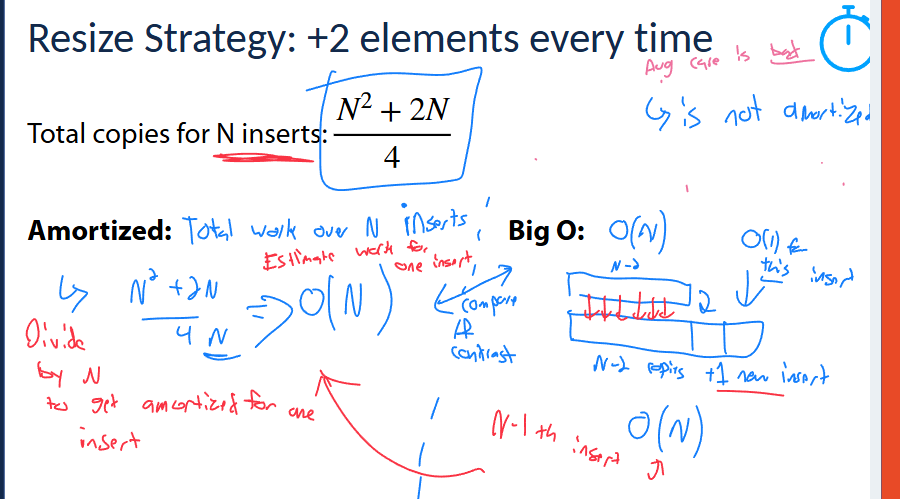 Resize Strategy: +2 elements every time
Aug case is bad
↳ is not amortized
Total copies for N inserts: N² + 2N
4
Amortized: Total work over N inserts
Estimate work for
one insert
↳ N² + 2N
4 N
⇒ O(N)
Divide
by N
to get amortized for one
insert
compare
contrast
Big O: O(N)
O(1) for
this insert
N-2
2
N-2 copies +1 new insert
N-1 th insert
O(N)